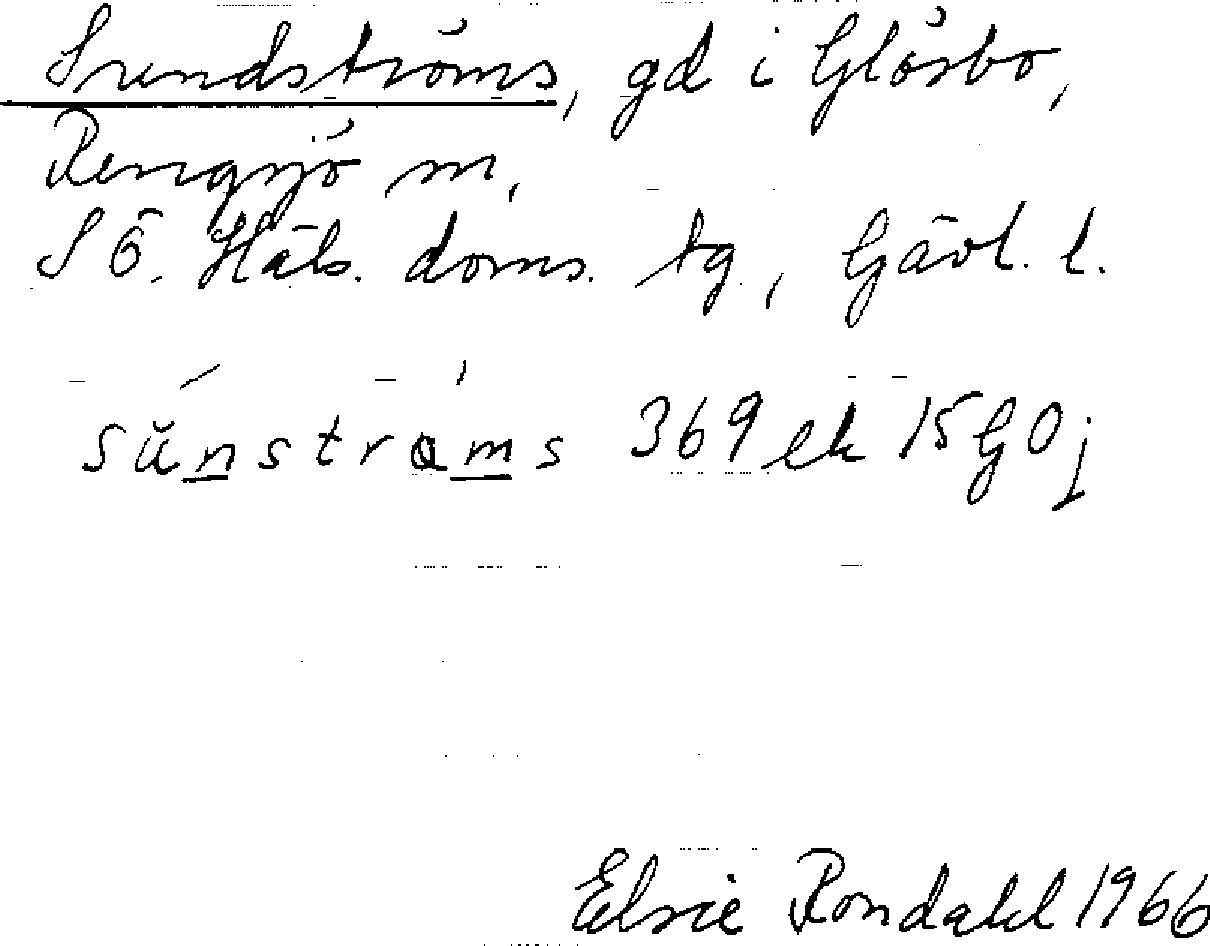 Sundströms, gd i Glösbo,
Rengsjö sn,
S Ö. Häls. doms. tg, Gävl. l.
sŭnstrams 369 ek 15G0j
Elsie Rondahl 1966